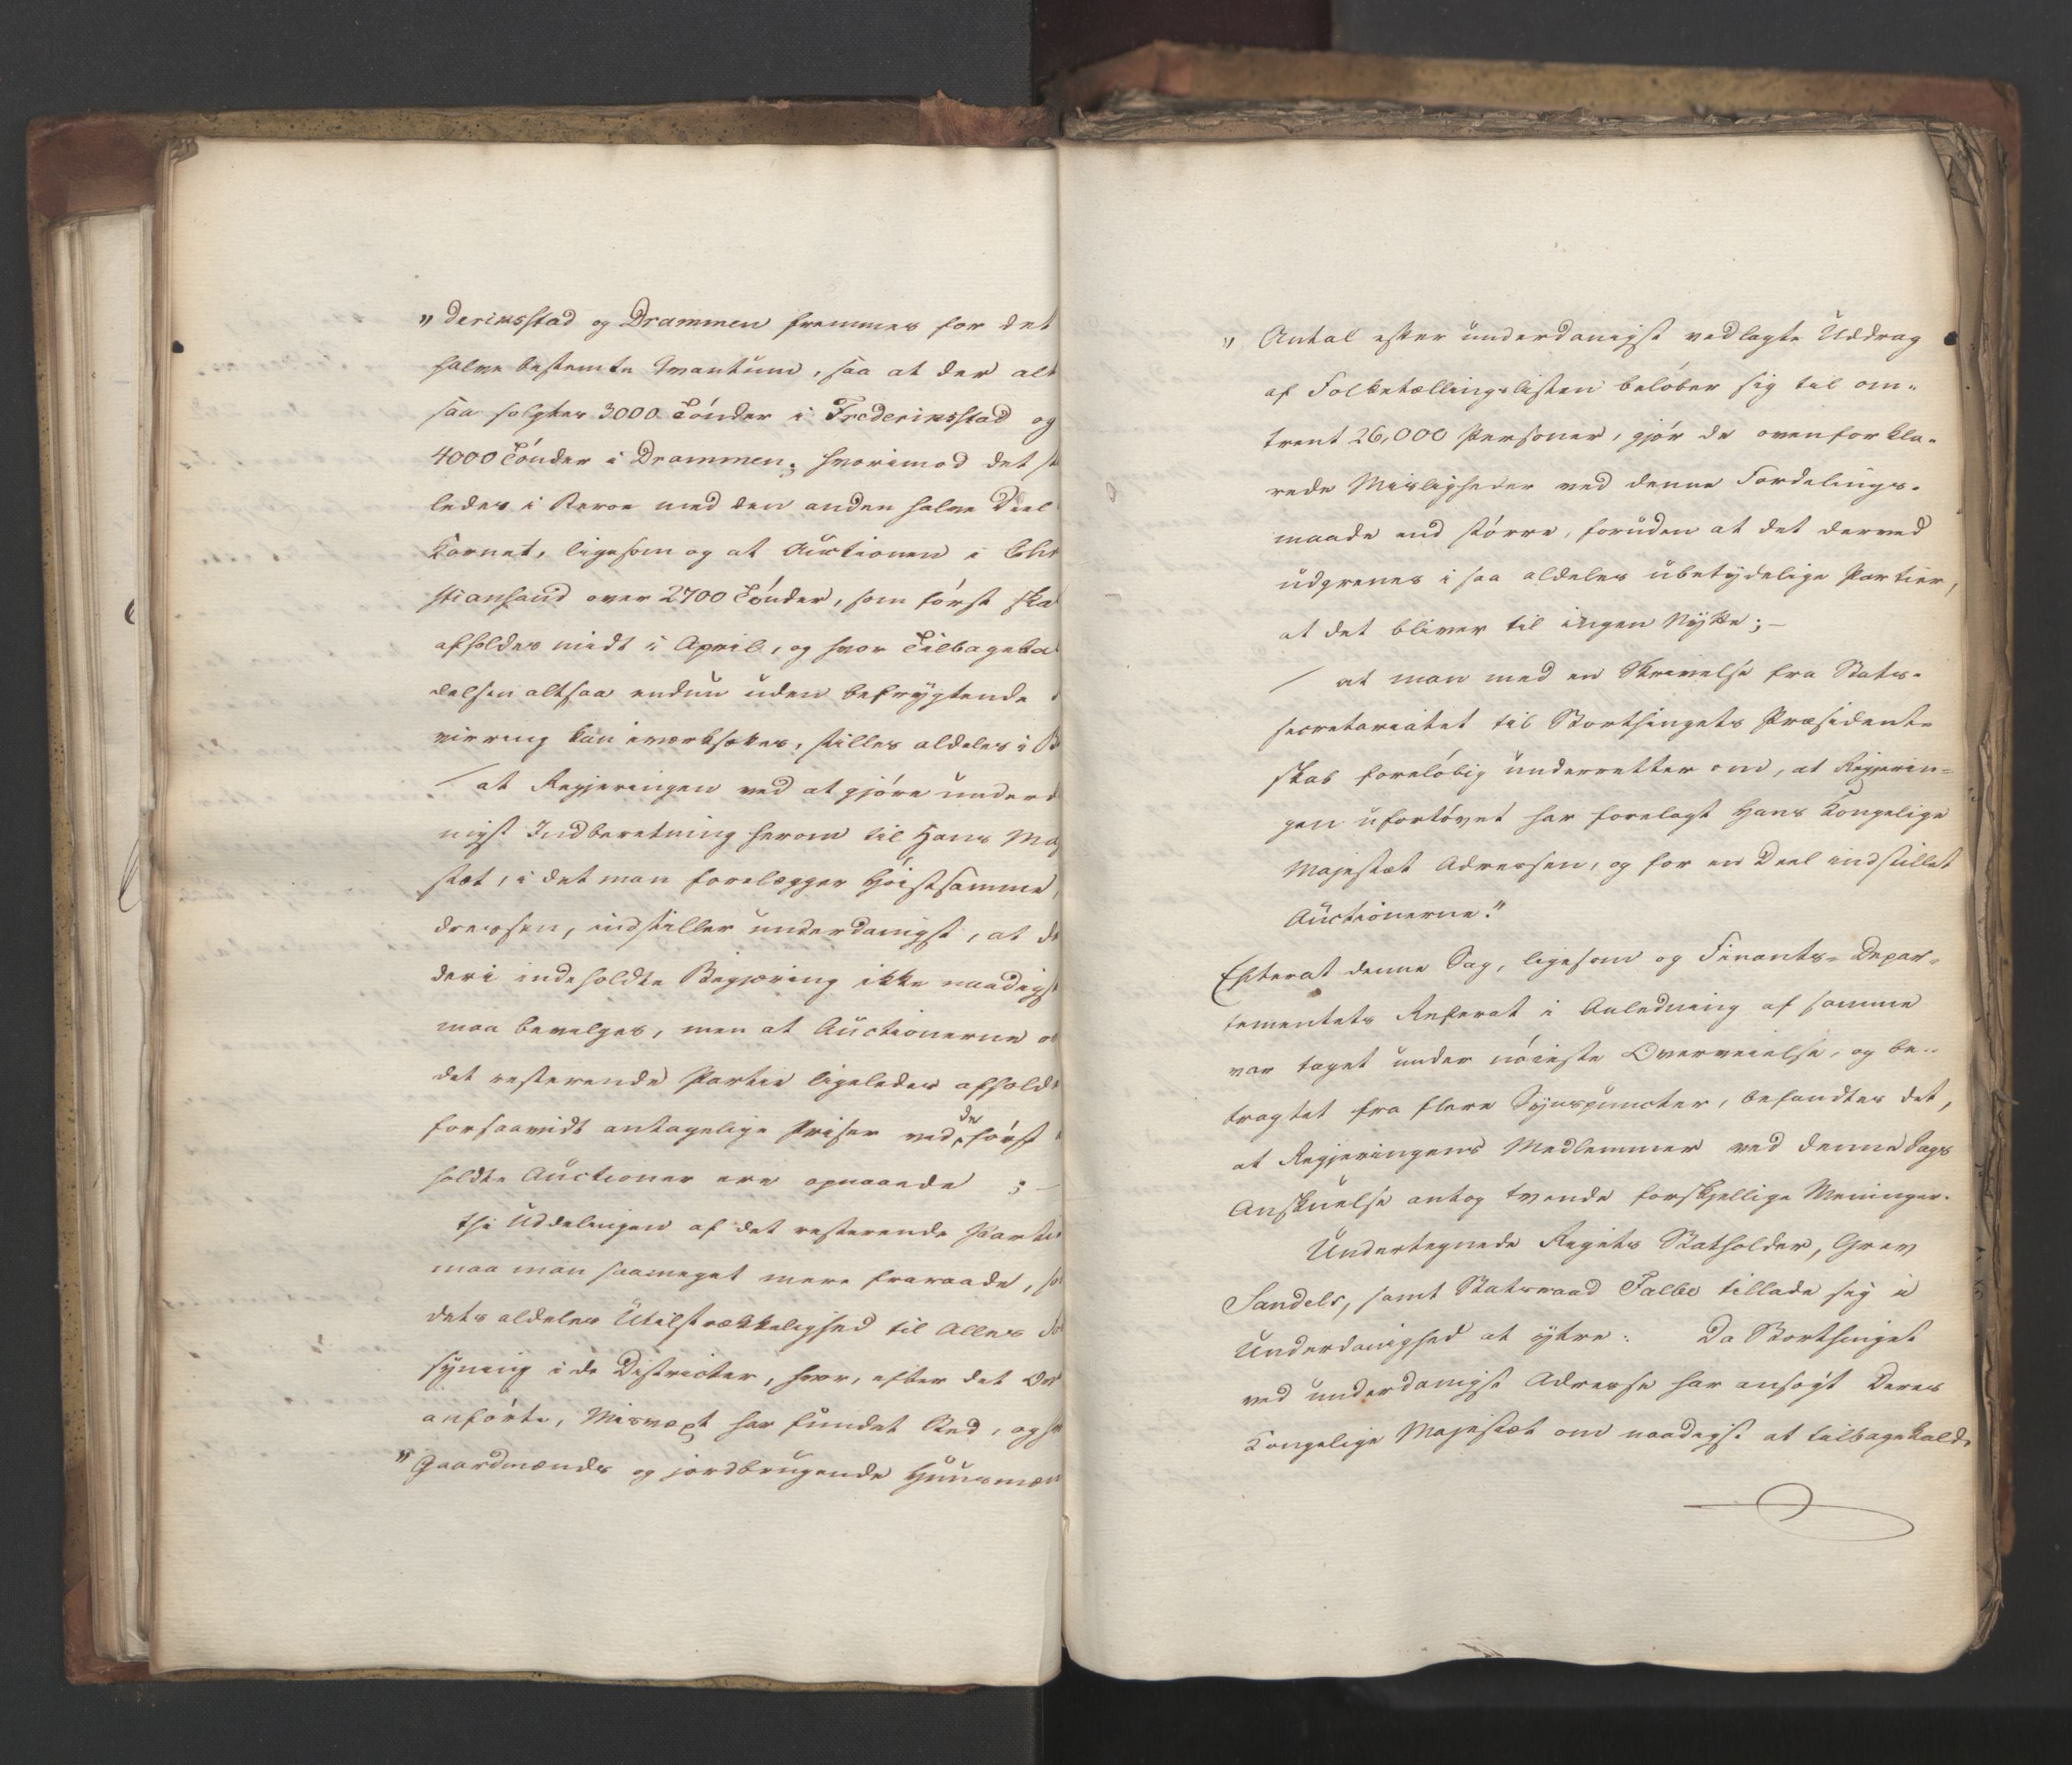 " deriksstad og Drammen fremmes for det
halve bestemte Qvantum, saa at der alt
saa solgtes 3000 Tönder i Frederiksstad og
4000 Tönder i Drammen; hvorimod det
ledes i Beroe med den anden halve Deel
Kornet, ligesom og at Auctionen i Chr
stiansand over 2700 Tönder, som först ska
afholdes midt i April, og hvor Tilbageka
delsen altsaa endnu uden befrygtende
virring kan iværksættes, stilles aldeles i B
at Regjeringen ved at gjöre underd
nigst Indberetning herom til Hans Maj
stæt, i det man forelægger Höistsamme,
dressen, indstiller underdanigst, at d
deri indeholdte Begjæring ikke naadigst
maa bevilges, men at Auctionerne o
det resterende Partie ligeledes afhold
forsaavidt antagelige Priser ved de först
holdte Auctioner ere opnaaede ; —
thi Uddelingen af det resterende Parti
maa man saameget mere fraraade, so
dets aldeles Utilstrækkelighed til Alles For
syning i de Districter, hvor, efter det Ov
anförte, Misvæxt har fundet Sted, og h
" Gaardmænds og jordbrugende Huusmæn
" Antal efter underdanigst vedlagte Uddrag
af Folketællingslisten belöber sig til om-
trent 26,000 Personer, gjör de ovenforkla-
rede Misligheder ved denne Fordelings-
maade end större, foruden at det derved
udgrenes i saa aldeles ubetydelige Partier,
at det bliver til ingen Nÿtte; —
at man med en Skrivelse fra Stats-
secretariatet til Storthingets Præsident-
skab foreløbig underretter om, at Regjerin-
gen ufortövet har forelagt Hans Kongelige
Majestæt Adressen, og for en Deel indstillet
Auctionerne."
Efterat denne Sag, ligesom og Finants-Depar-
tementets Referat i Anledning af samme
var taget under nöieste Overveielse, og be-
tragtet fra flere Sÿnspuncter, befandtes det,
at Regjeringens Medlemmer ved denne Sags
Anskuelse antog tvende forskjellige Meninger.
Undertegnede Rigets Statholder, Grev
Sandels, samt Statsraad Falbe tillade sig i
Underdanighed at ÿtre: Da Storthinget
ved underdanigst Adresse har ansögt Deres
Kongelige Majestæt om naadigst at tilbagekalde